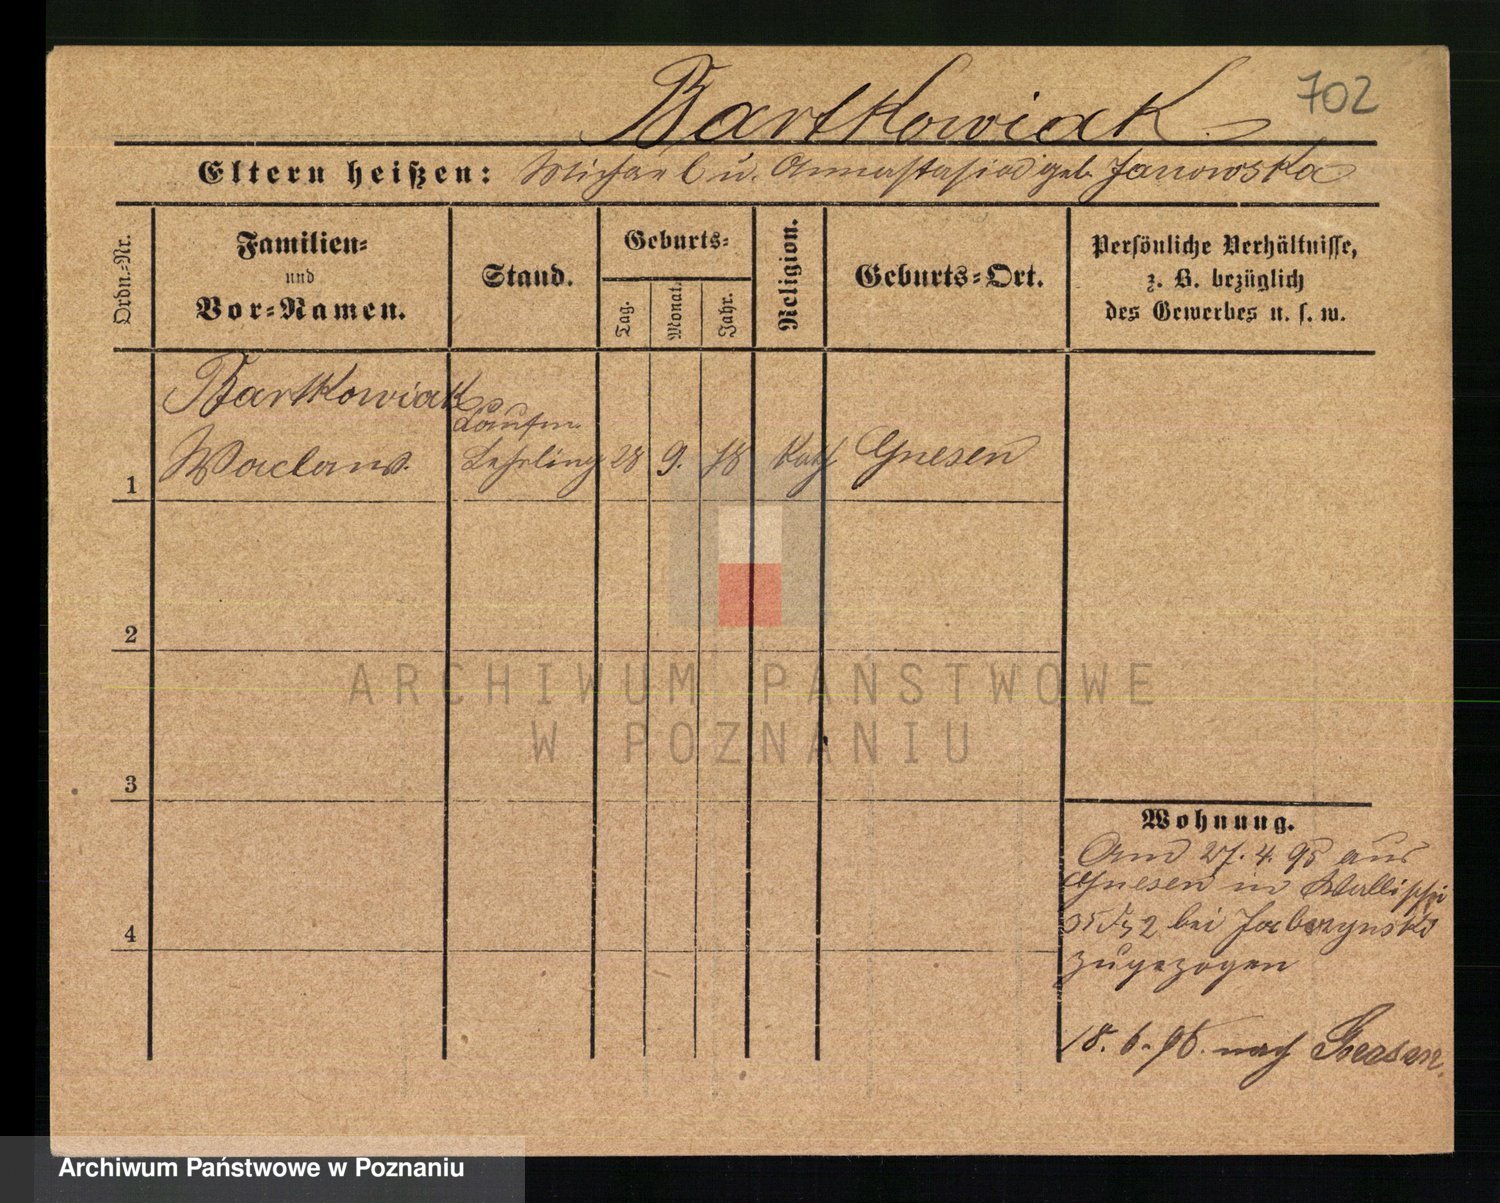 Bartkowiak 702
Eltern heißen: Michael u. Annastasia geb. Janowska
Ordn.-Nr.
Familien-
und
Vor-Namen.
Stand.
Geburts-
Tag.
Monat.
Jahr.
Religion.
Geburts-Ort.
Persönliche Verhältnisse,
z. B. bezüglich
des Gewerbes u. s. w.
Bartkowiak
Kaufm.
1 Waclaw. Lehrling 28 9. 78 Kath Gnesen
2
ARCHIWUM PAŃSTWOWE
W POZNANIU
3
Wohnung.
Am 27. 4. 95 aus
Gnesen in Wallischei
2 bei
4
zugezogen
18. 6. 96. nach
Archiwum Państwowe w Poznaniu